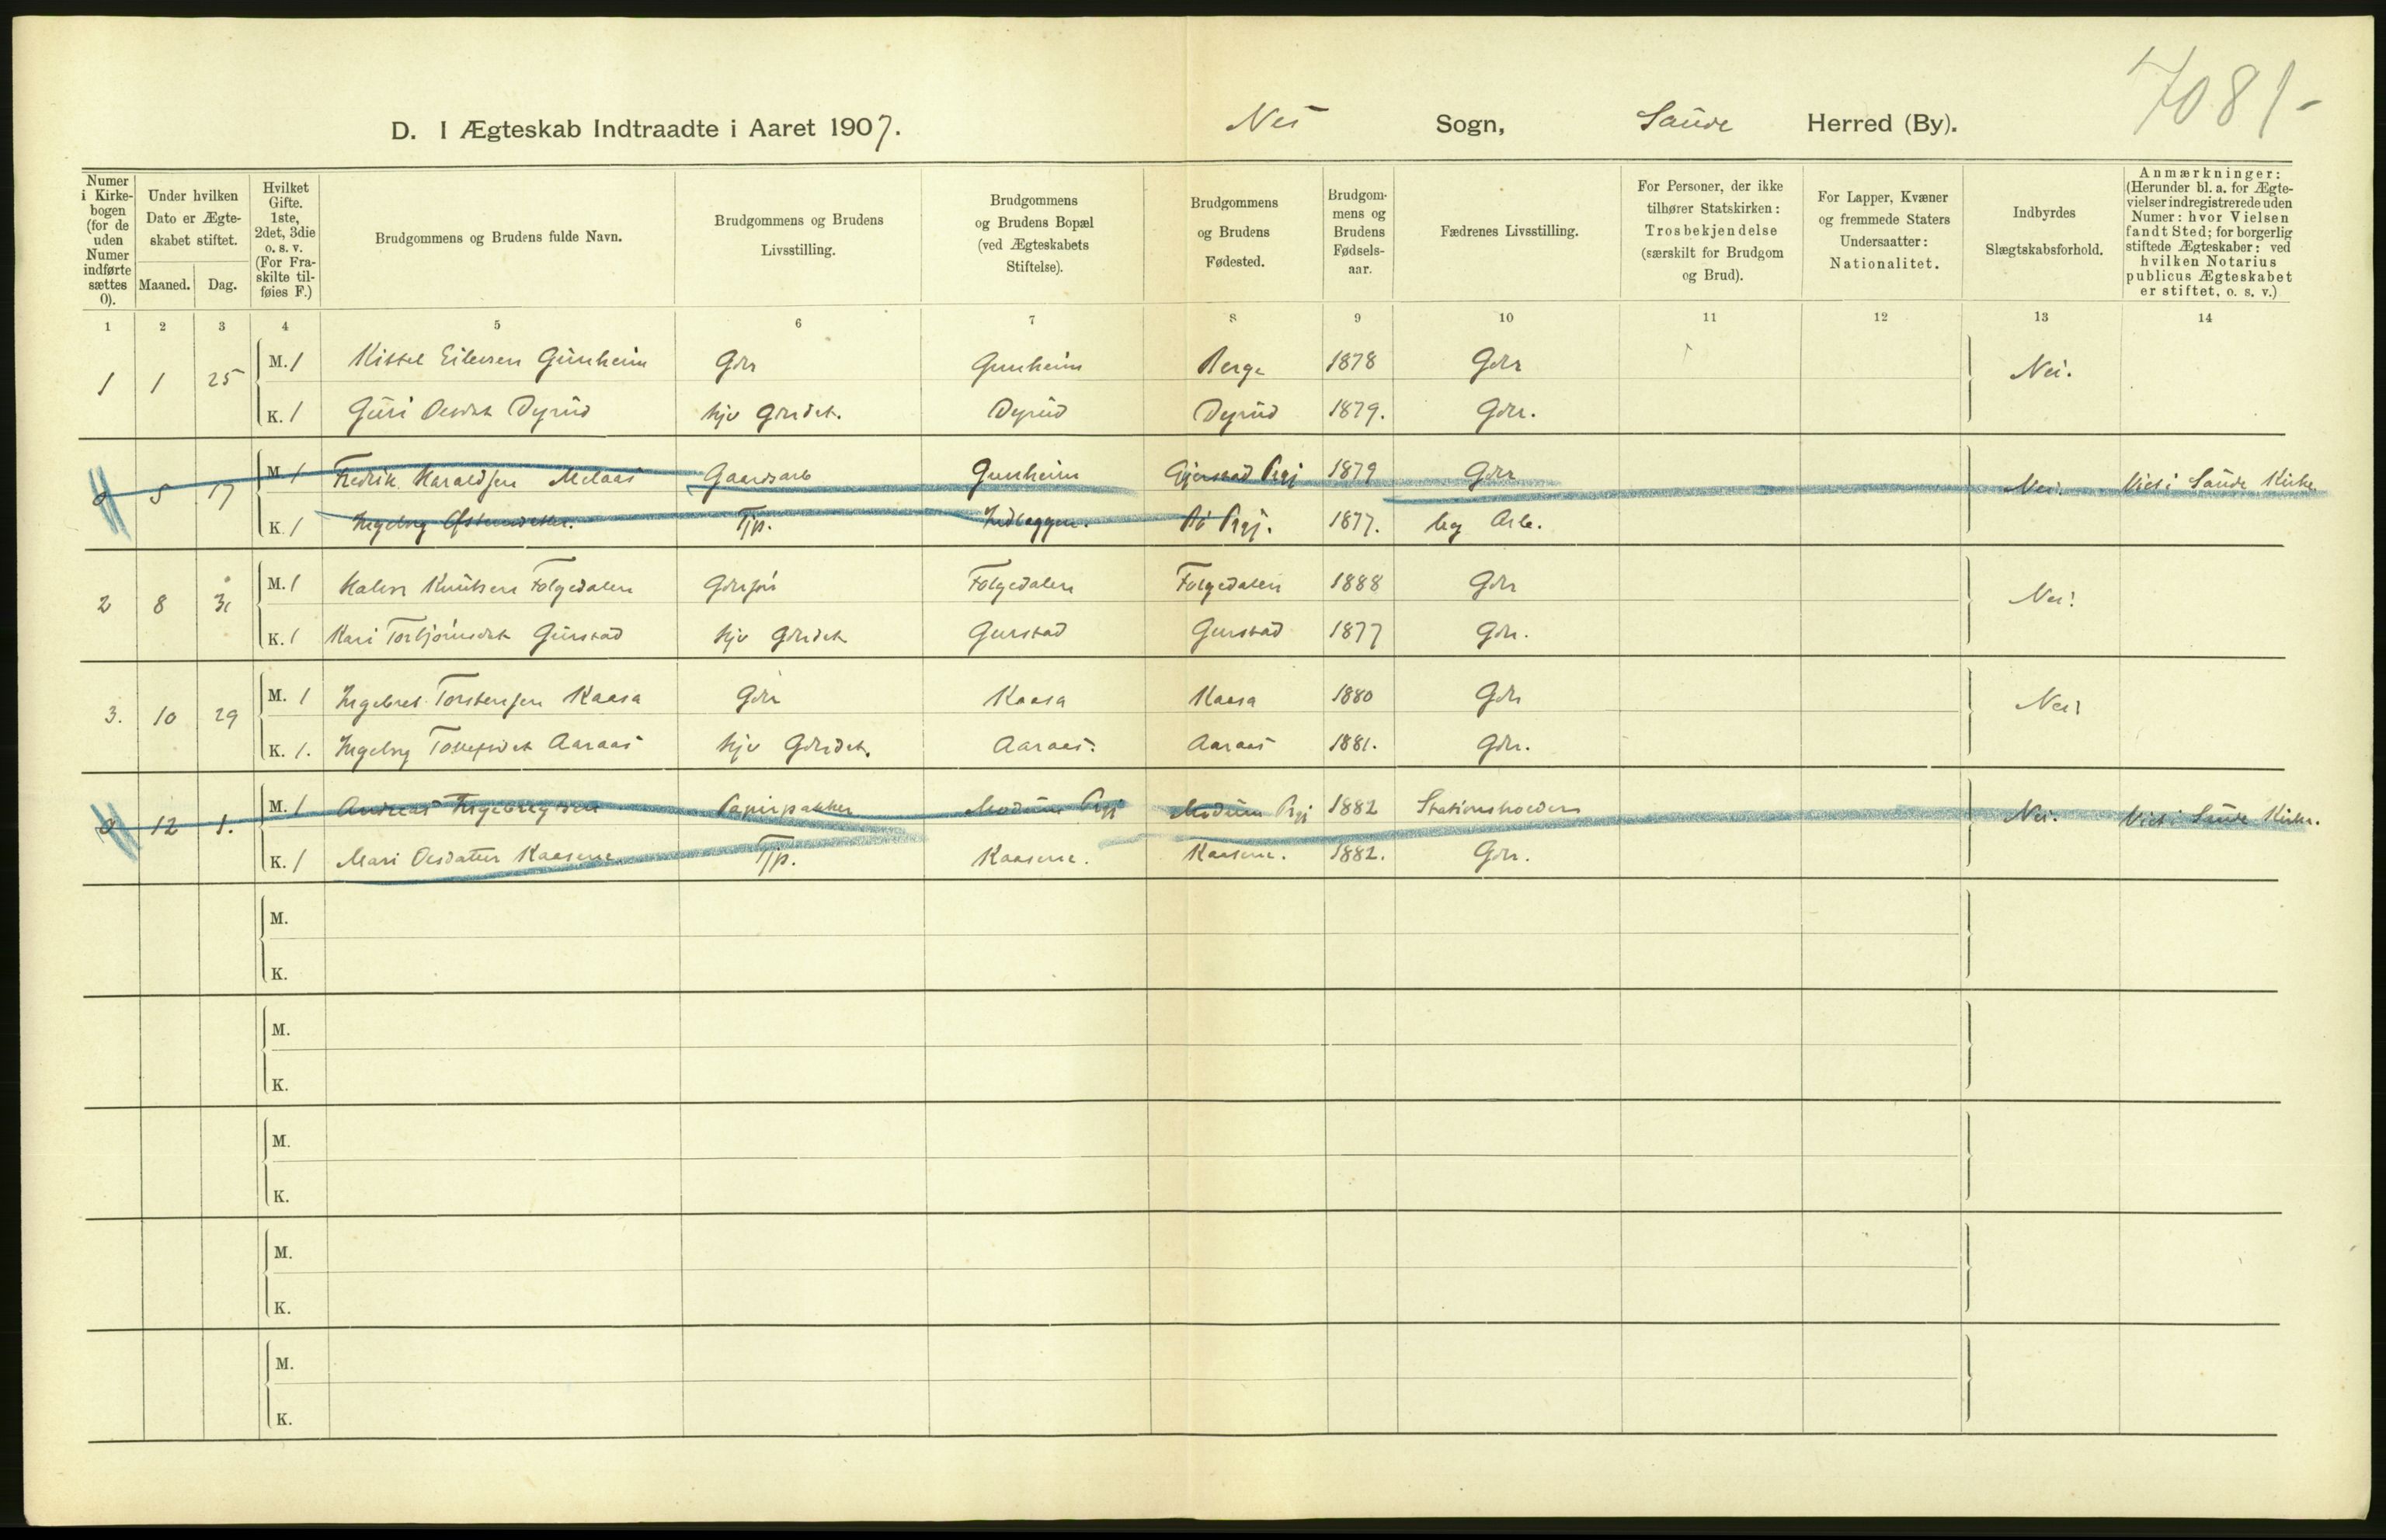 7081-
D. I Ægteskab Indtraadte i Aaret 1907. Nes Sogn, Saude Herred (By).
Numer i Kirkebogen (for de uden Numer indførte sættes 0).
Under hvilken Dato er Ægteskabet stiftet.
Maaned. Dag.
Hvilket Gifte. 1ste, 2det, 3die o. s. v. (For Fraskilte tilføies F.)
Brudgommens og Brudens fulde Navn.
Brudgommens og Brudens Livsstilling.
Brudgommens og Brudens Bopæl (ved Ægteskabets Stiftelse).
Brudgommens og Brudens Fødested.
Brudgommens og Brudens Fødselsaar.
Fædrenes Livsstilling.
For Personer, der ikke tilhører Statskirken: Trosbekjendelse (særskilt for Brudgom og Brud).
For Lapper, Kvæner og fremmede Staters Undersaatter: Nationalitet.
Indbyrdes Slægtskabsforhold.
Anmærkninger: (Herunder bl. a. for Ægtevielser indregistrerede uden Numer: hvor Vielsen fandt Sted; for borgerlig stiftede Ægteskaber: ved hvilken Notarius publicus Ægteskabet er stiftet, o. s. v.)
1 2 3 4 5 6 7 8 9 10 11 12 13 14
1 1 25 M. 1 Kittel Eilevsen Gunheim Gbr Gunheim Berge 1878 Gbr Nei.
K. 1 Guri Olsdt Dyrud hjv Gbrdtr. Dyrud Dyrud 1879. Gbr.
0 5 17 M. 1 Fredrik Haraldsen Melaas Gaardsarb Gunheim Gjerstad Prgj 1879 Gbr Nei. Viet i Saude Kirke
K. 1 Ingeborg Tjp. Bø Prgj. 1877. Arb.
2 8 31 M. 1 Halvor Knutsen Folgedalen Gbrsøn Folgedalen Folgedalen 1888 Gbr Nei.
K. 1 Kari Torbjørnsdtr Gurstad hjv Gbrdtr Gurstad Gurstad 1877 Gbr.
3. 10 29 M. 1 Ingebret Torstensen Kaasa Gbr Kaasa Kaasa 1880 Gbr Nei
K. 1. Ingeborg Tollefsdtr Aaraas hjv Gbrdtr. Aaraas. Aaraas 1881. Gbr.
0 12 1. M. 1 Andreas Ingebrigtsen Papirpakker Modum Prgj Modum Prgj 1882 Stationsholder Nei. Viet i Saude Kirke.
K. 1 Mari Olsdatter Kaasene Tjp. Kaasene. Kaasene. 1882. Gbr.
M.
K.
M.
K.
M.
K.
M.
K.
M.
K.